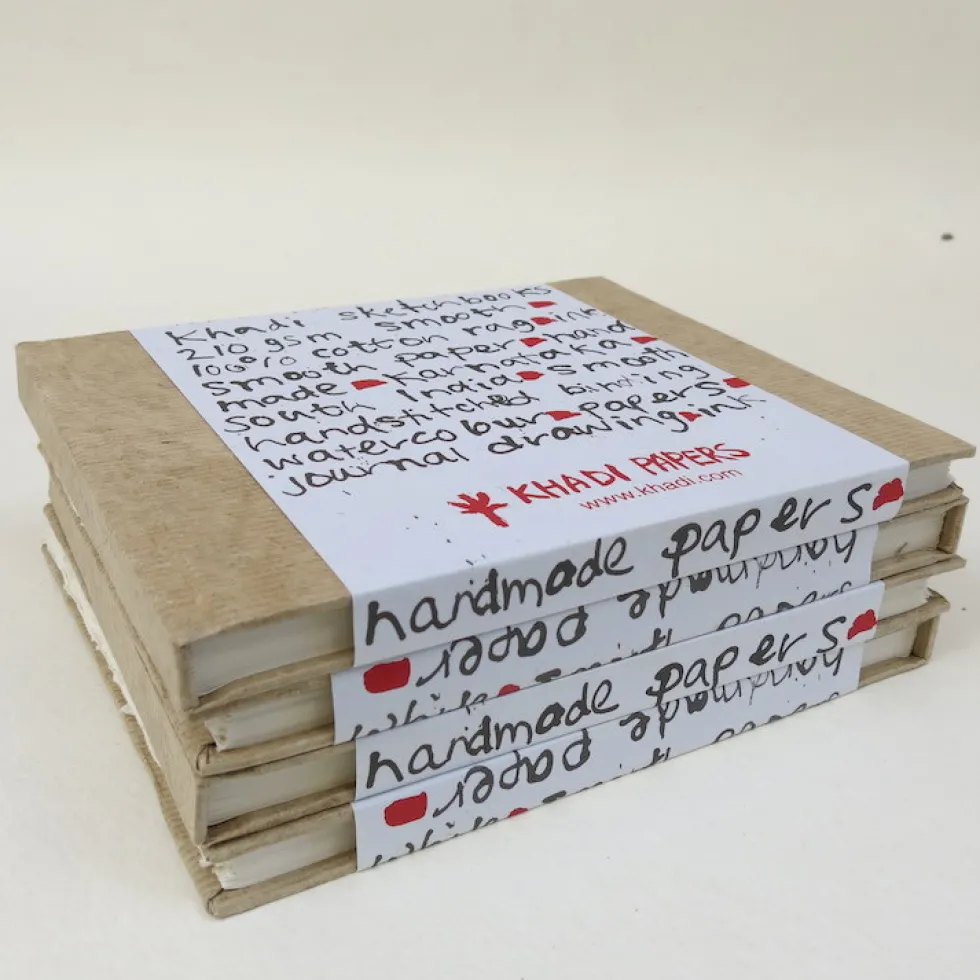 Khadi sketchbooks
210 gsm smooth
100% cotton rag ink
smooth paper hand
made Karnataka
South India smooth
handstitched binding
watercolour papers
journal drawing ink
KHADI PAPERS
www.khadi.com
handmade papers
handmade paper
handmade papers
handmade paper